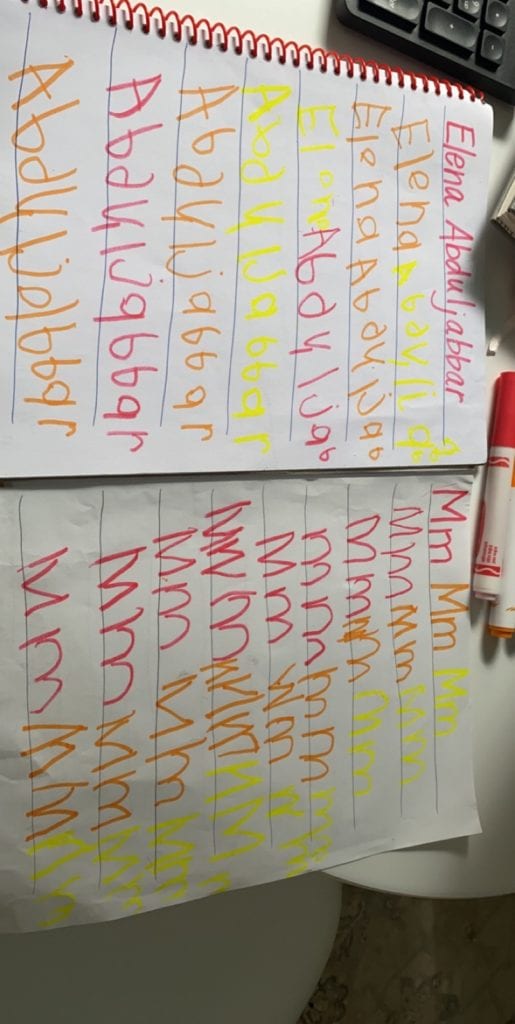 Elena Abduljabbar
Elena Abdulja
Elena Abduljab
Elena Abduljab
Abduljabbar
Abduljabbar
Abduljabbar
Abduljabbar
Mm Mm Mm
Mm Mm Mm
Mm Mm Mm
mm mm m
Mm Mm
Mm Mm
Mm Mm Mm
Mm Mm Mm
Mm Mm